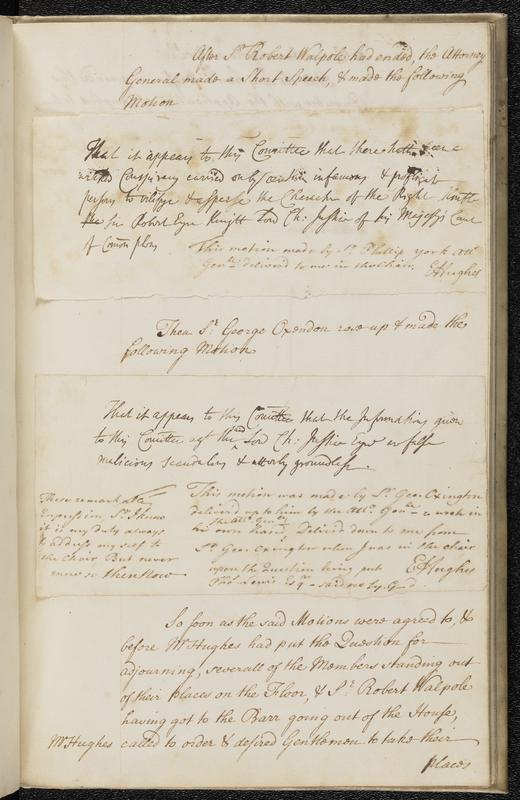 After Sr. Robert Walpole had ended, the Attorney
General made a Short Speech, & made the following
Motion
That it appears to this Comittee that there hath been a
wicked Conspiracy carried on by certain infamous & profligat
persons to vilifye & asperse the Character of the Right honble
the Sir Robert Eyre Knight Lord Ch: Justice of his Majestys Court
of Comon pleas
This motion made by Sr. Phillip york att:
Genll. delivered to me in the Chair. EHughes
Then Sr. George Oxendon rose up & made the
following Motion
That it appears to this Comittee that the Informations given
to this Comittee agt the sd Lord Ch: Justice Eyre are false
malicious scandalous & utterly groundless.
This motion was made by Sr. Geo: Oxington
delivered up to him by the Att: Genll. & wrote in
the Att: Genlls
his own hand Delivd down to me from
Sr Geo: Oxington when I was in the Chair
upon the Question being put EHughes
Tho: Lewis Esqr. said no by G–d
These remarkable
Expression, Sr. I know
it is my duty always
to address my self to
the Chair But never
more so then now
So soon as the said Motions were agreed to, &
before Mr Hughes had put the Question for
adjourning, severall of the Members standing out
of their places on the Floor, & Sr. Robert Walpole
having got to the Barr going out of the House,
Mr Hughes called to order & desired Gentlemen to take their
places